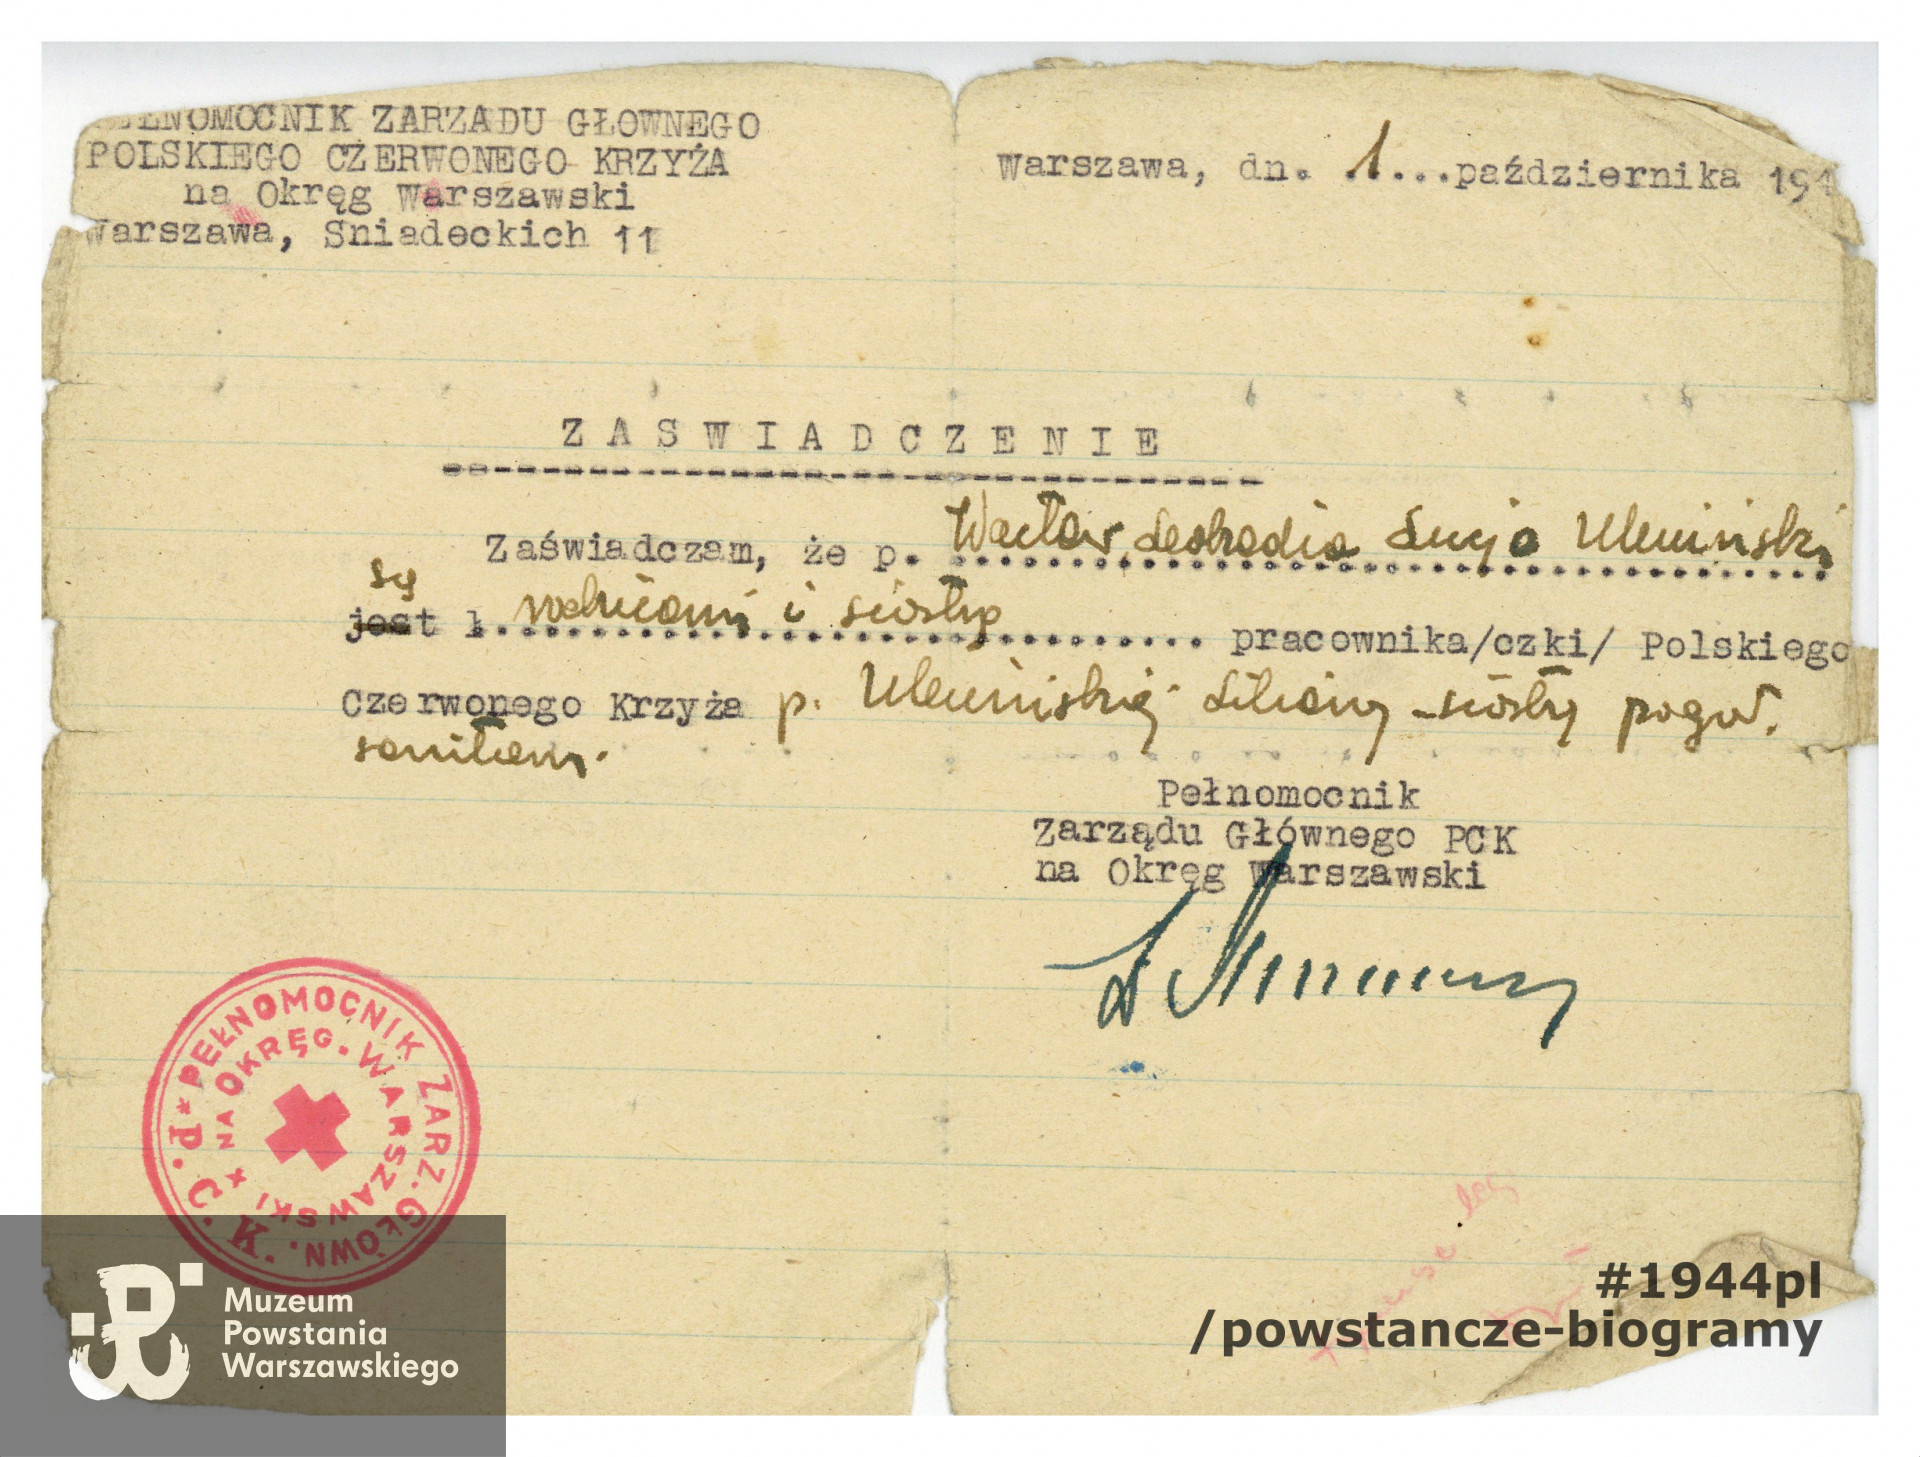 PEŁNOMOCNIK ZARZADU GŁOWNEGO
POLSKIEGO CZERWONEGO KRZYŻA
na Okręg Warszawski
Warszawa, Sniadeckich 11
Warszawa, dn. 1...października 194
Z A S W I A D C Z E N I E
Zaświadczam, że p. Wacław, Leokadia Lucja Uleniński
są
jest 1. rodzicami i siostrą pracownika/czki/ Polskiego
Czerwonego Krzyża p. Ulenińskiej Liliany - siostry pogot.
sanitarn.
Pełnomocnik
Zarządu Głównego PCK
na Okręg Warszawski
PEŁNOMOCNIK ZARZ. GŁÓWN. P. C. K.
NA OKRĘG. WARSZAWSKI
Muzeum
Powstania
Warszawskiego
#1944pl
/powstancze-biogramy